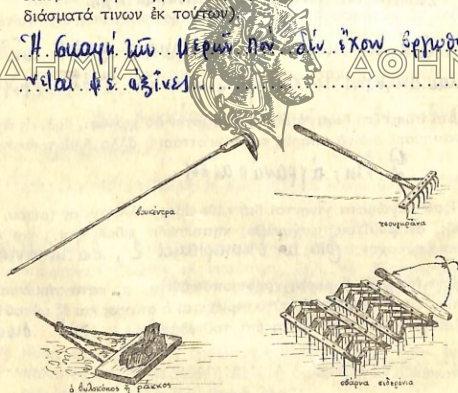 διάσματά τινων ἐκ τούτων).
Ἡ σκαφή τῶν μερῶν ποὺ δὲν ἔχουν ὀργωθῆ
νεται μὲ ἀξίνες
βουκέντρα
τσουγκράνα
ὁ βωλοκόπος ἢ ράκκος
σβάρνα σιδερένια